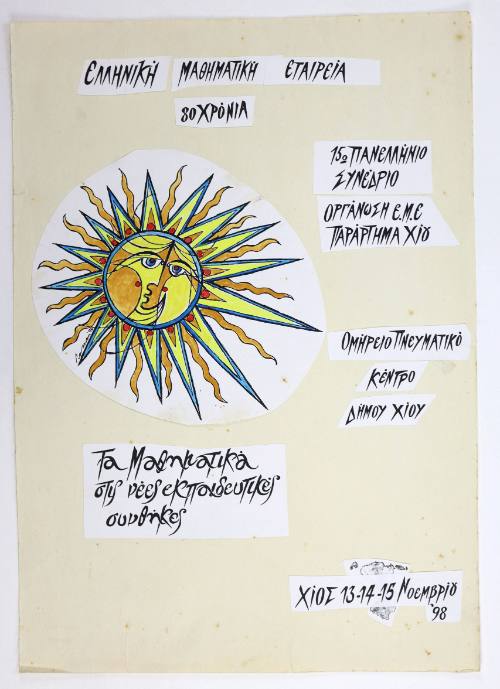 ΕΛΛΗΝΙΚΗ ΜΑΘΗΜΑΤΙΚΗ ΕΤΑΙΡΕΙΑ
80 ΧΡΟΝΙΑ
15ο ΠΑΝΕΛΛΗΝΙΟ
ΣΥΝΕΔΡΙΟ
ΟΡΓΑΝΩΣΗ Ε.Μ.Ε
ΠΑΡΑΡΤΗΜΑ ΧΙΟΥ
ΟΜΗΡΕΙΟ ΠΝΕΥΜΑΤΙΚΟ
ΚΕΝΤΡΟ
ΔΗΜΟΥ ΧΙΟΥ
Τα Μαθηματικά
στις νέες εκπαιδευτικές
συνθήκες
ΧΙΟΣ 13-14-15 ΝΟΕΜΒΡΙΟΥ
'98